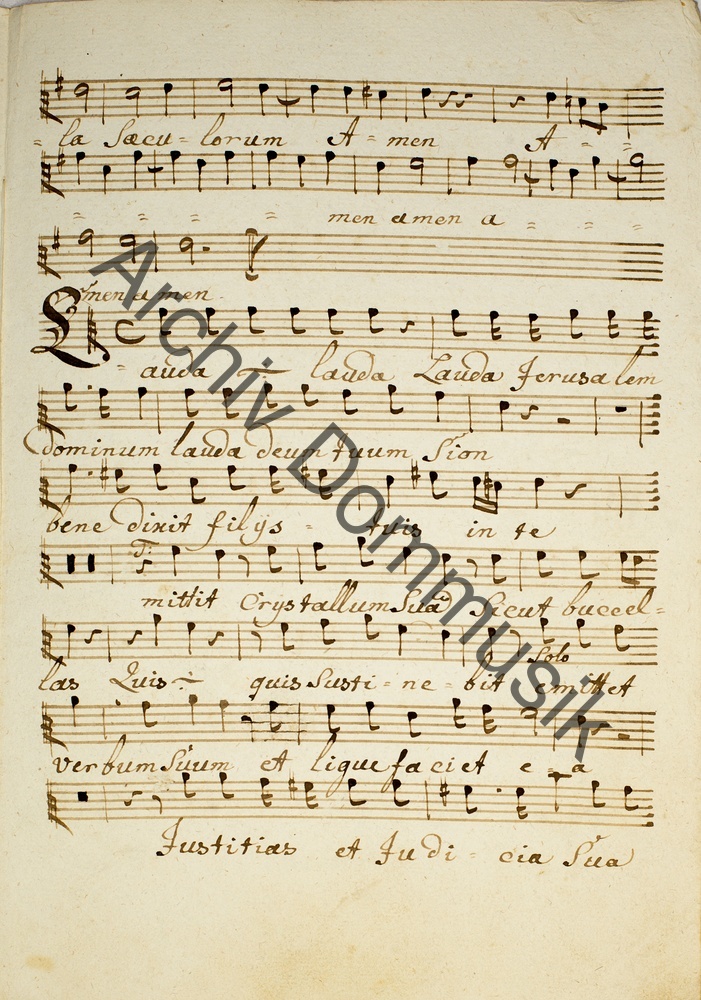 la Sæcu - lorum A - men A -
= = = = men amen a = = =
= men a men.
Lauda lauda Lauda Jerusalem
dominum lauda deum tuum Sion
bene dixit filijs = tuis in te
T:
mittit Crystallum Suã Sicut buccel=
Solo
las Quis ÷ quis Susti = ne = bit emittet
verbum Suum et liquefaciet e - a
Justitias et Judi = cia Sua
Archiv Dommusik